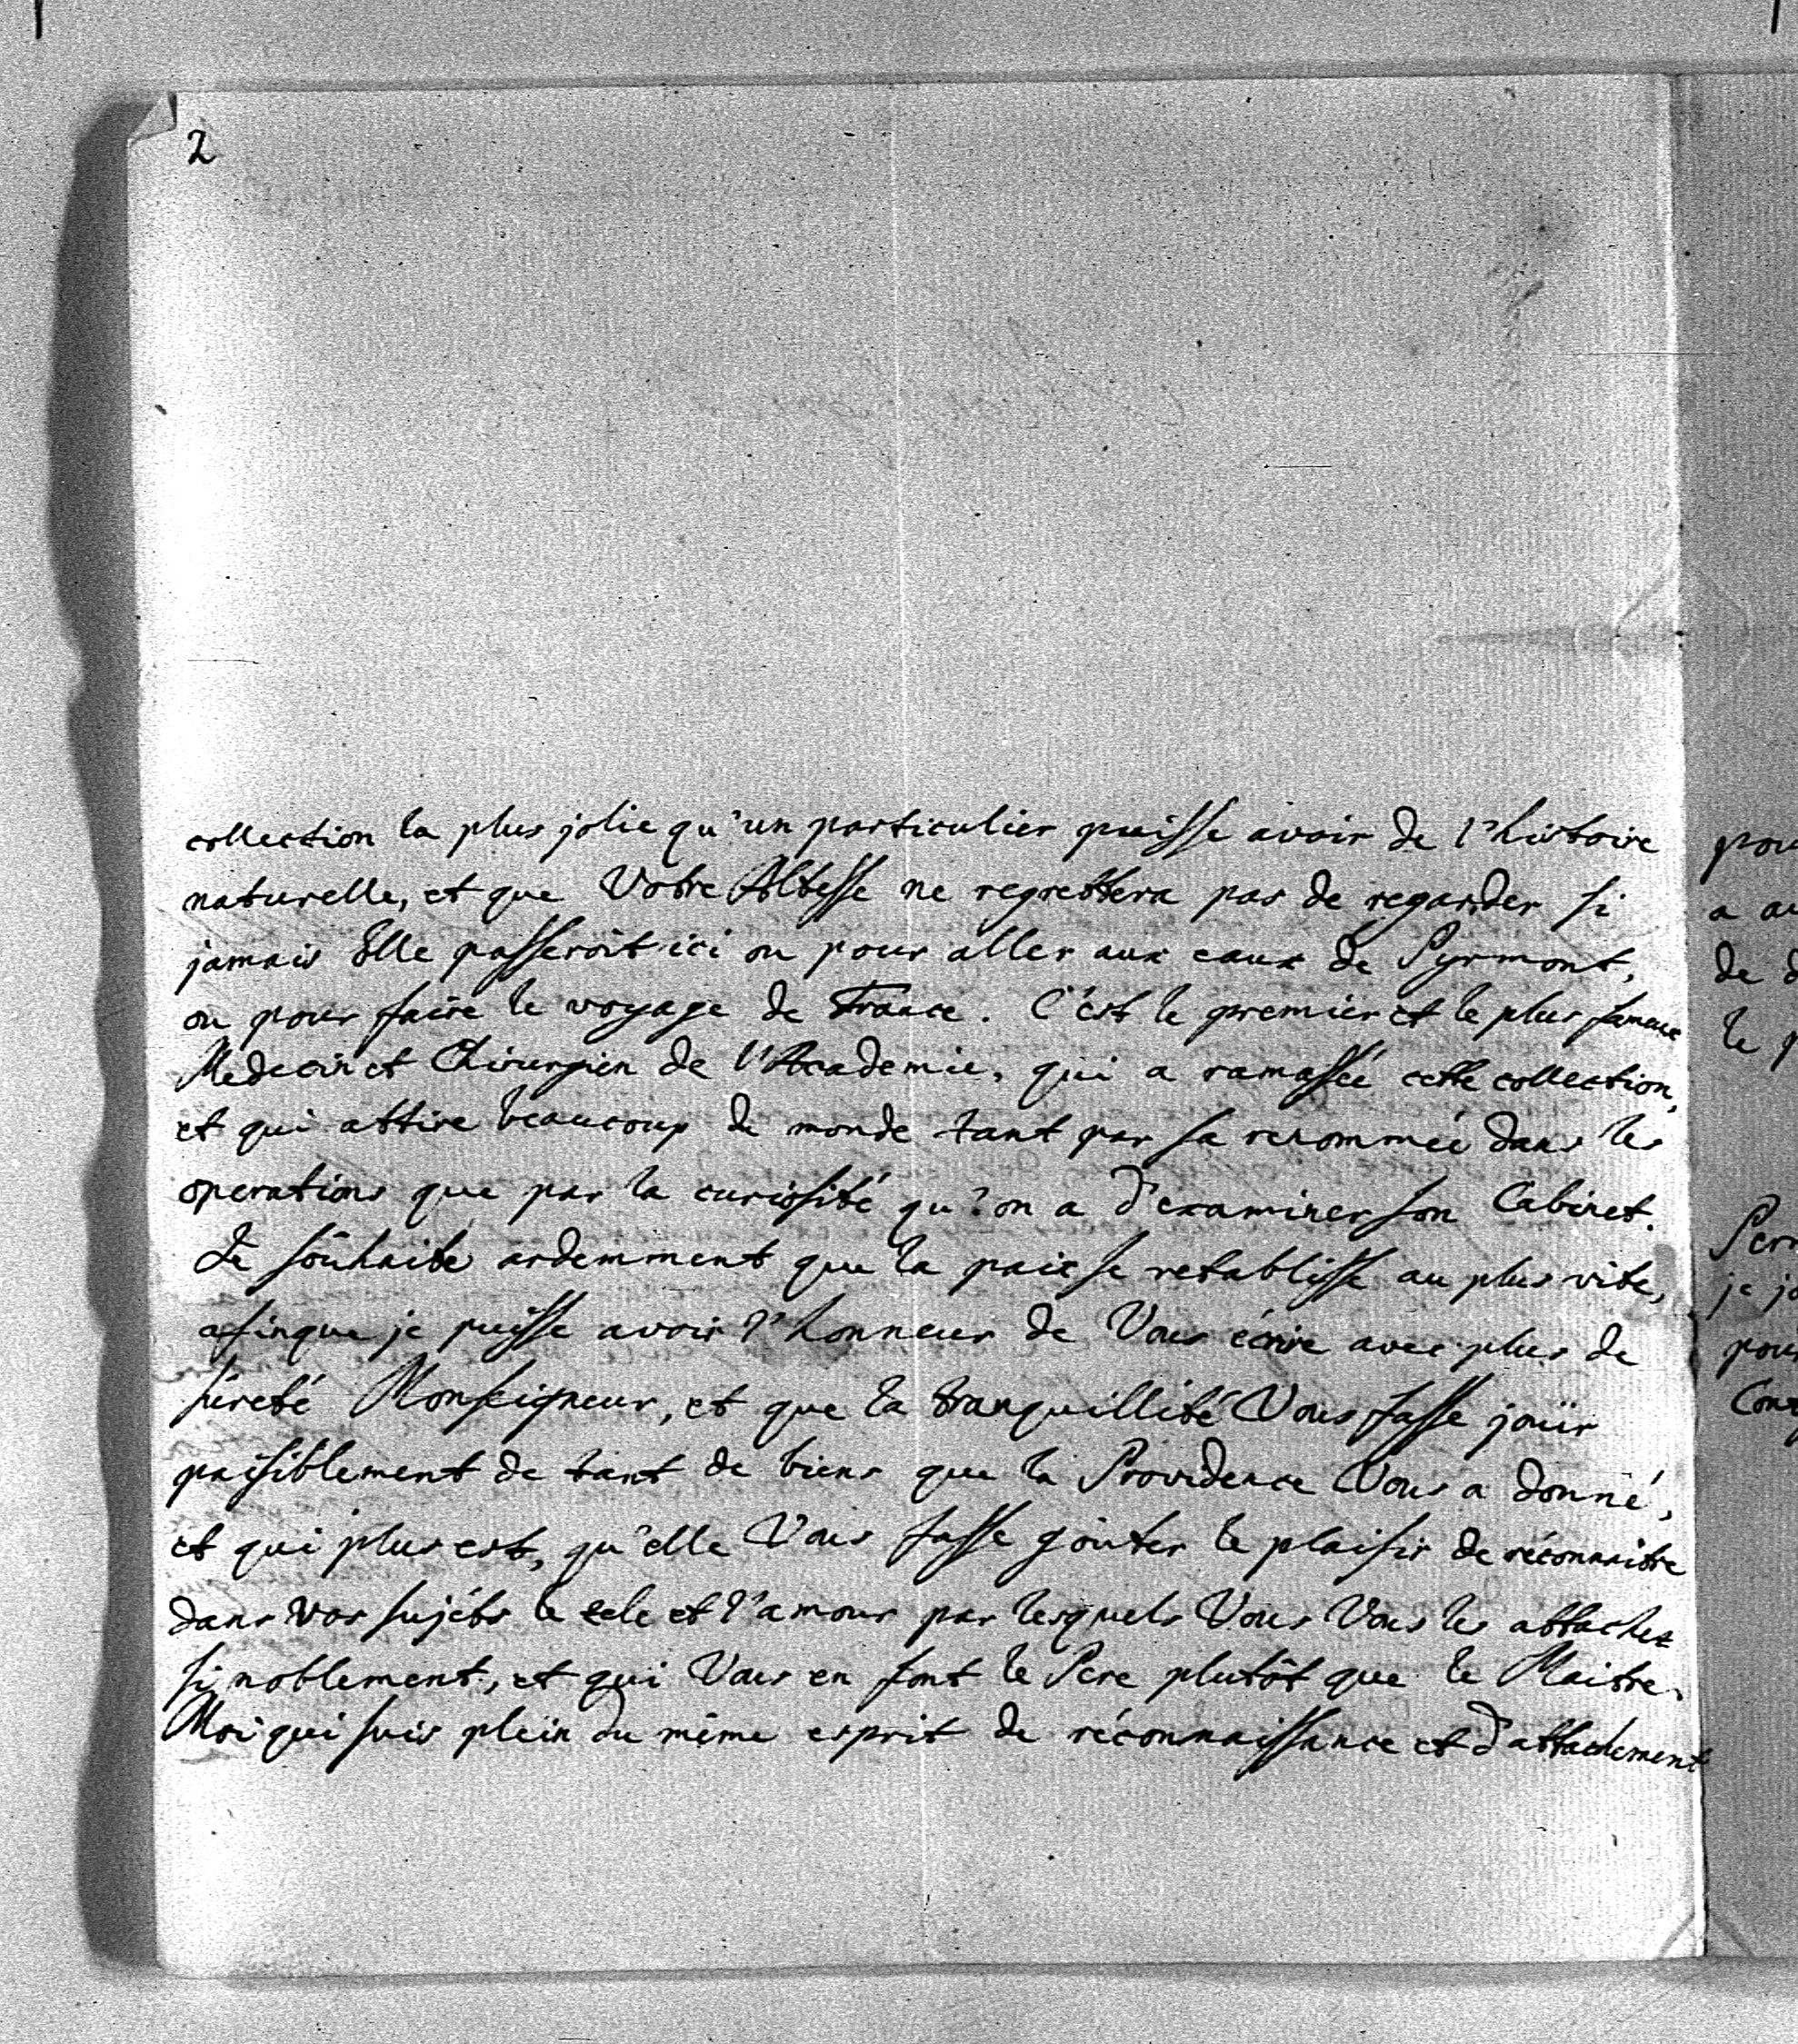 2
collection la plus jolie qu'un particulier puisse avoir de l'histoire
naturelle, et que Votre Altesse ne regrettera pas de regarder si
jamais Elle passeroit ici ou pour aller aux eaux de Pyrmont,
ou pour faire le voyage de France. C'est le premier et le plus fameux
Medecin et Chirurgien de l'Academie, qui a ramassée cette collection,
et qui attire beaucoup de monde tant par sa renommée dans les
operations que par la curiosité qu'on a d'examiner son Cabinet.
Je souhaite ardemment que la paix se retablisse au plus vite,
afinque je puisse avoir l'honneur de Vous écrire avec plus de
sûreté Monseigneur, et que la tranquillité Vous fasse joüir
paisiblement de tant de biens que la Providence Vous a donné,
et qui plus est, qu'elle Vous fasse goûter le plaisir de réconnaitre
dans vos sujéts le zele et l'amour par lesquels Vous Vous les attachez
si noblement, et qui Vous en font le Pere plutôt que le Maitre.
Moi qui suis plein du même esprit de réconnaissance et d'attachement
pou
a au
de d
le p
Per
je jo
pour
Con